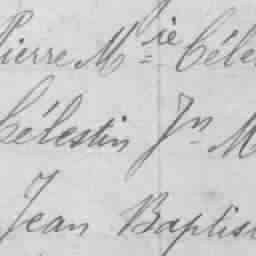 Pierre Mie Céle
Célestin Jn M
Jean Baptis